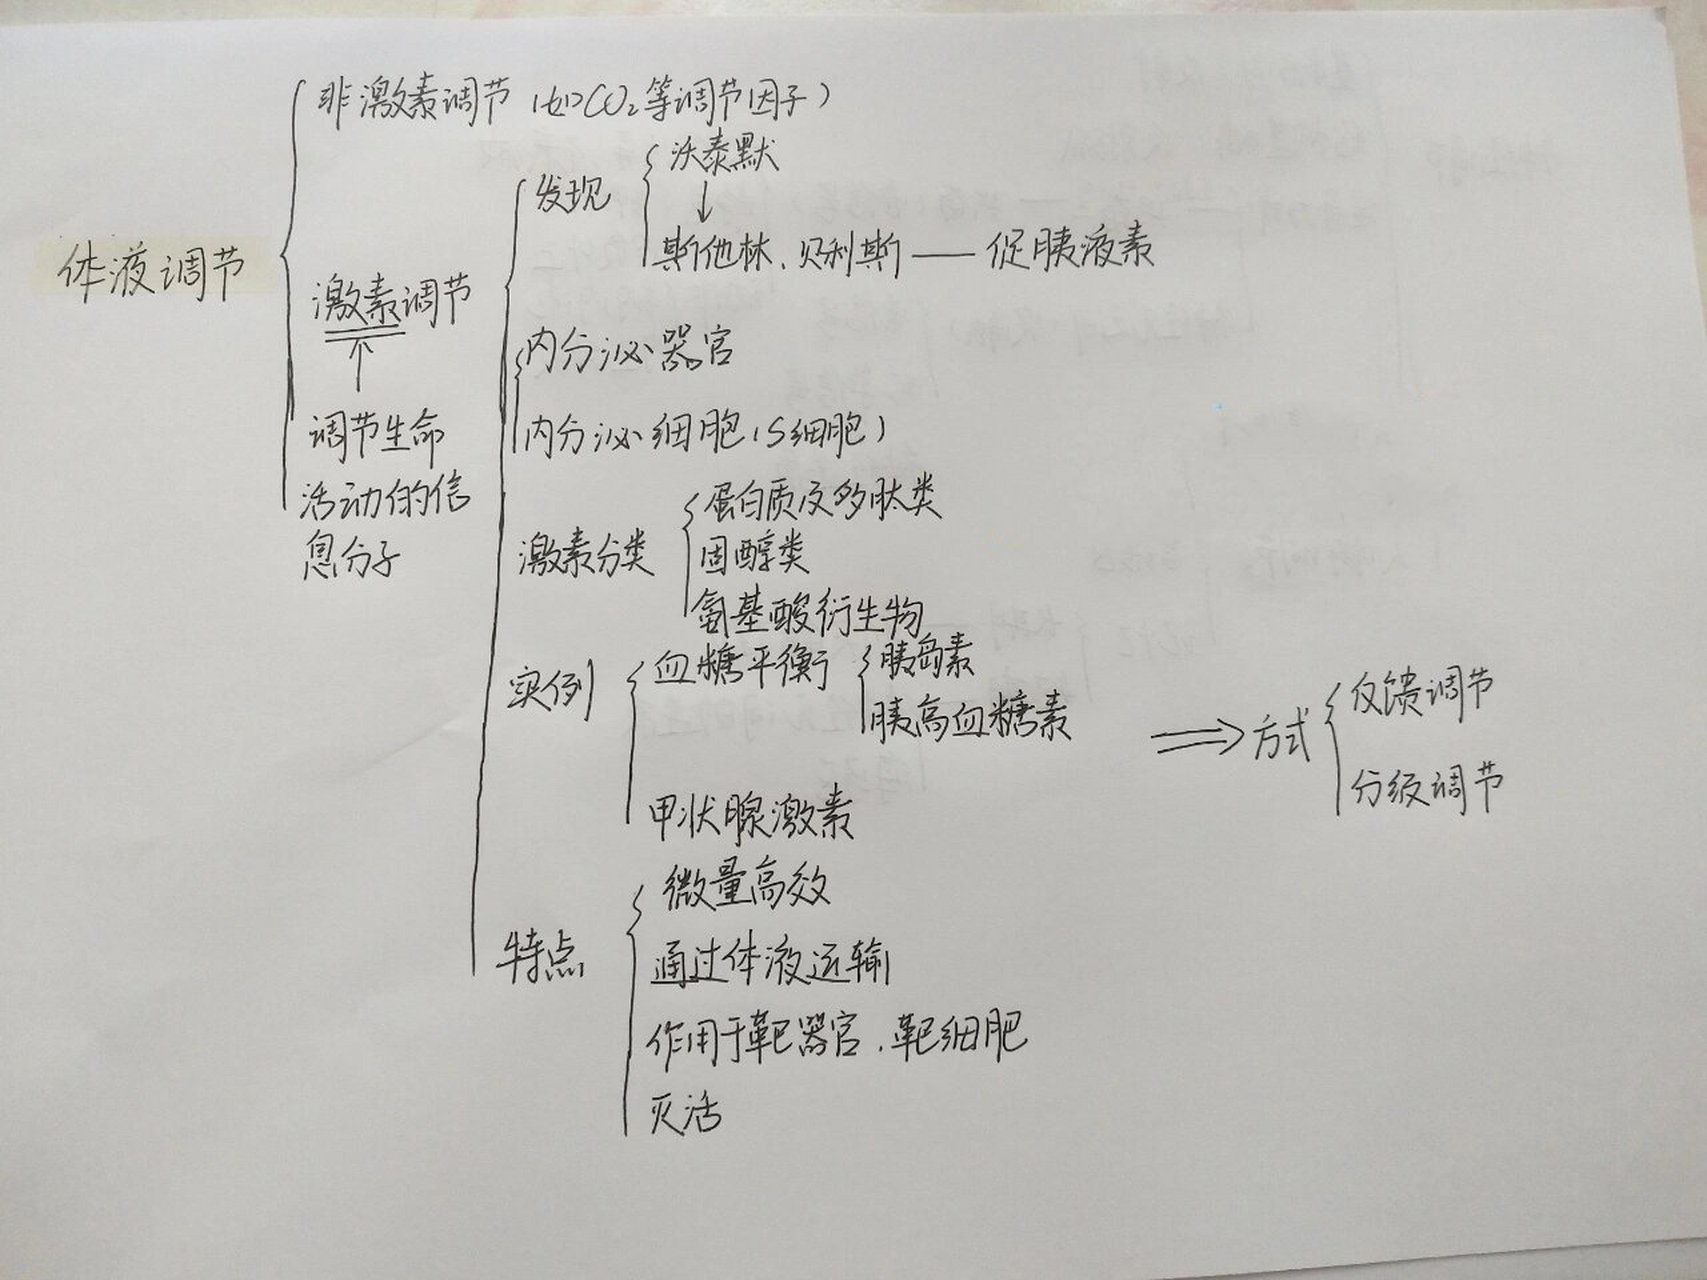 非激素调节(如CO₂等调节因子)
沃泰默
发现
↓
体液调节
斯他林、贝利斯——促胰液素
激素调节
↑
内分泌器官
调节生命
活动的信
息分子
内分泌细胞(S细胞)
蛋白质及多肽类
激素分类
固醇类
氨基酸衍生物
实例
血糖平衡
胰岛素
胰高血糖素
甲状腺激素
⇒方式
反馈调节
分级调节
微量高效
特点
通过体液运输
作用于靶器官、靶细胞
灭活